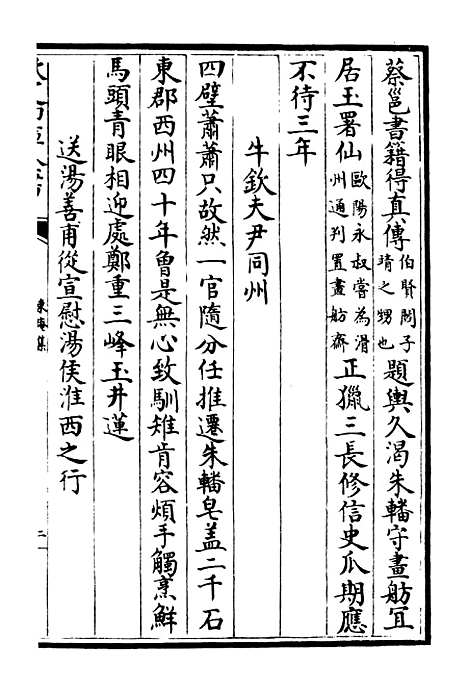 蔡邕書籍得真傳伯賢閻子靖之甥也題輿久渴朱轓守畫舫冝
居玉署仙歐陽永叔嘗為滑州通判置畫舫齋正獵三長修信史瓜期應
不待三年
牛欽夫尹同州
四壁蕭蕭只故然一官隨分任推遷朱轓皂盖二千石
東郡西州四十年曽是無心致馴雉肯容煩手觸烹鮮
馬頭青眼相迎處鄭重三峰玉井蓮
送湯善甫從宣慰湯侯淮西之行